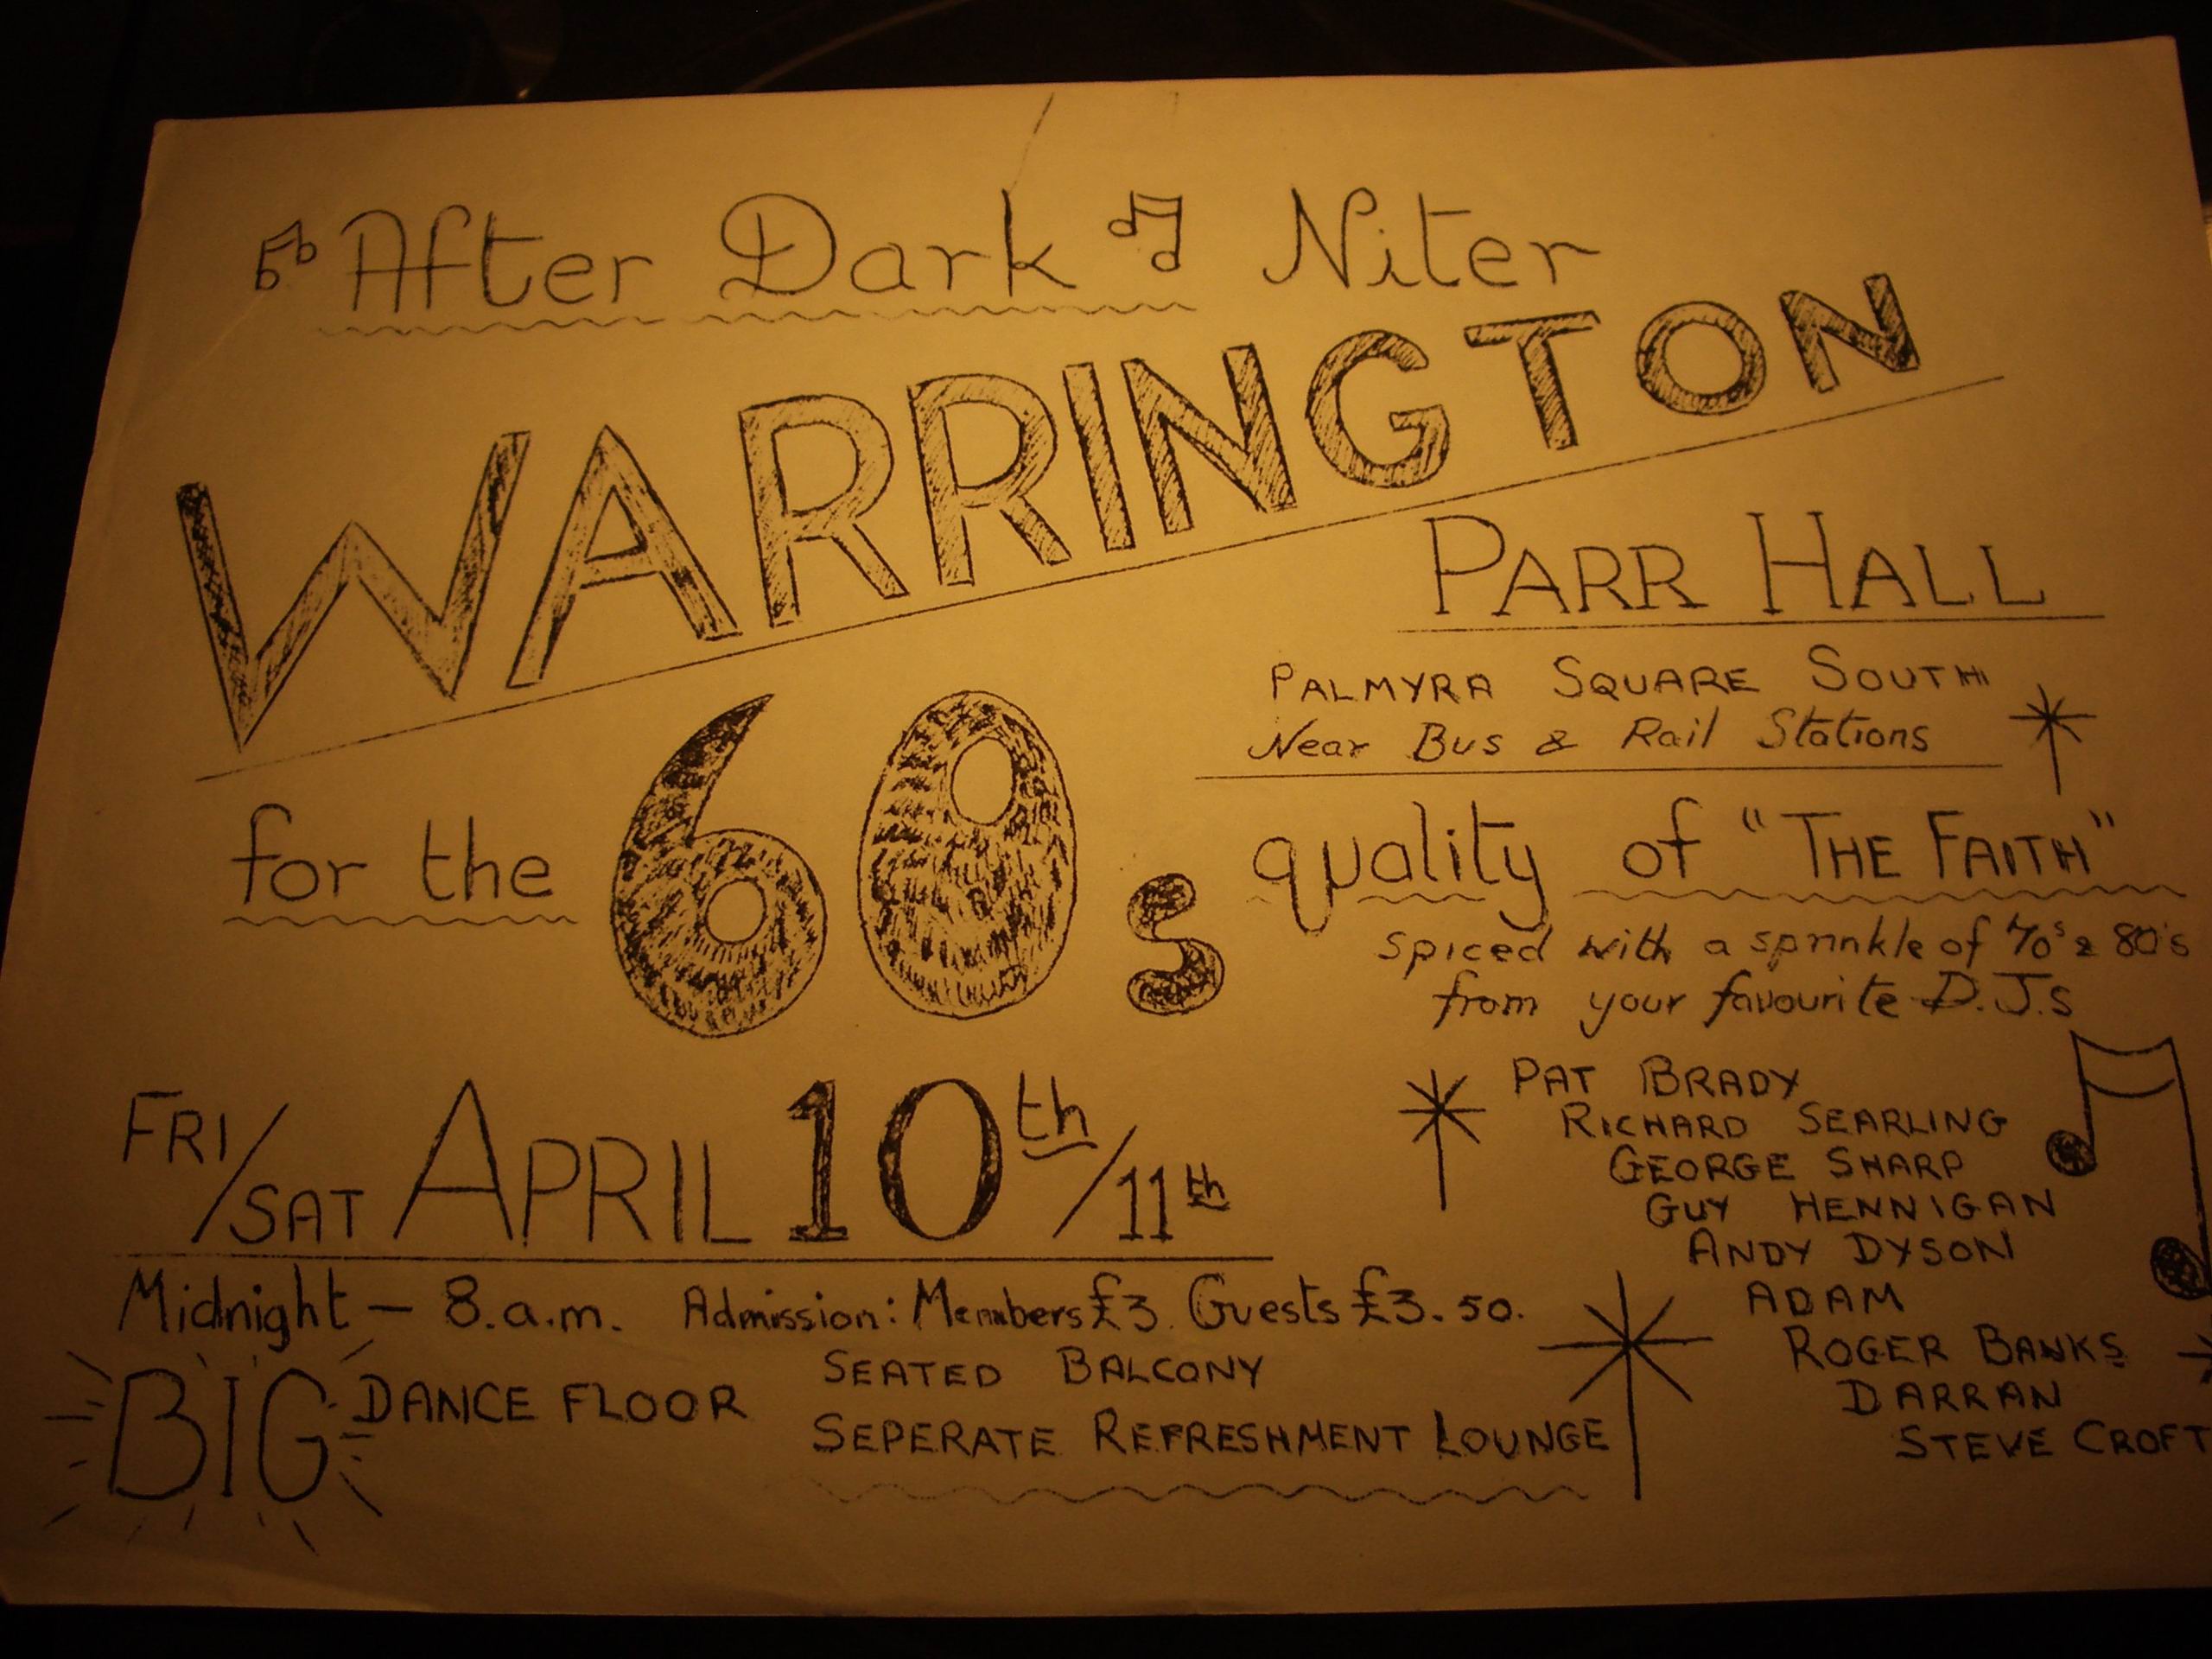 After Dark Niter
WARRINGTON
PARR HALL
PALMYRA SQUARE SOUTH
Near Bus & Rail Stations
for the 60s quality of "THE FAITH"
spiced with a sprinkle of 70s & 80's
from your favourite D.J.s
PAT BRADY
RICHARD SEARLING
GEORGE SHARP
GUY HENNIGAN
ANDY DYSON
ADAM
ROGER BANKS
DARRAN
STEVE CROFT
FRI/SAT APRIL 10th/11th
Midnight - 8.a.m. Admission: Members £3. Guests £3.50.
BIG DANCE FLOOR
SEATED BALCONY
SEPERATE REFRESHMENT LOUNGE